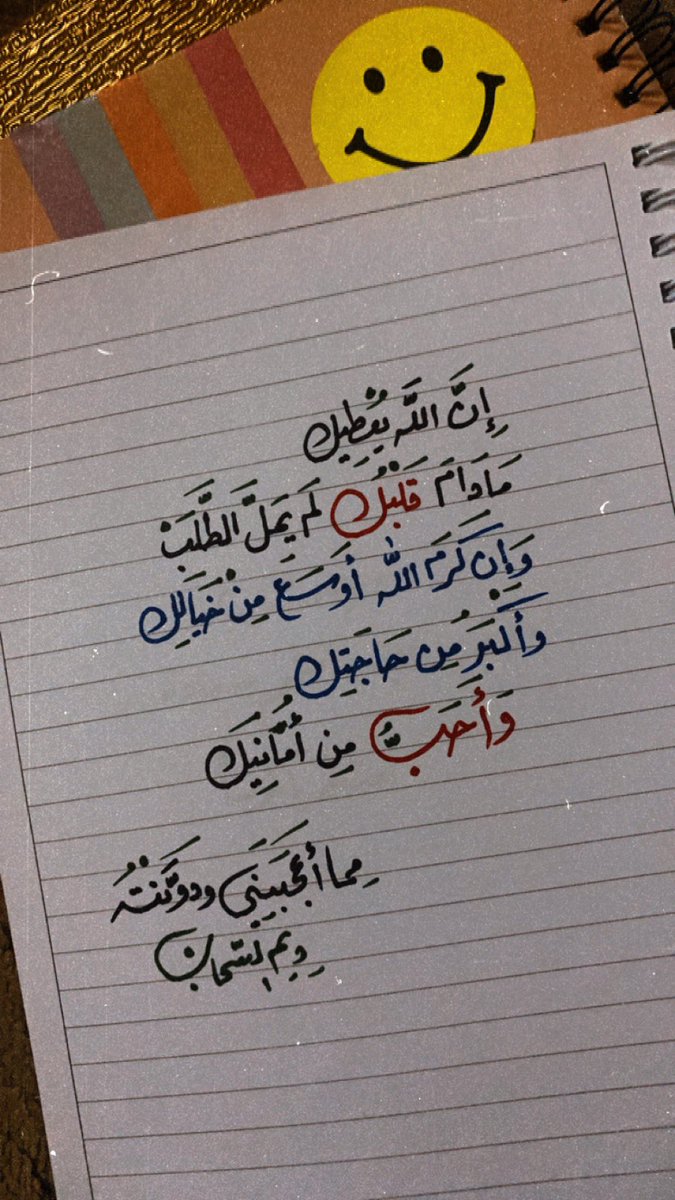 إِنَّ اللَّه يُعْطِيك
مَادَامَ قَلْبُك لَم يَمَلَّ الطَّلَبْ
وَإِن كَرَمَ اللَّه أوسَعَ مِنْ خَيَالِك
وأكْبَرَ مِن حَاجَتِك
وَأَحَبُّ مِن أُمْنِيَتِكَ
مِما أعْجَبَنِي ودوَّنْتُهُ